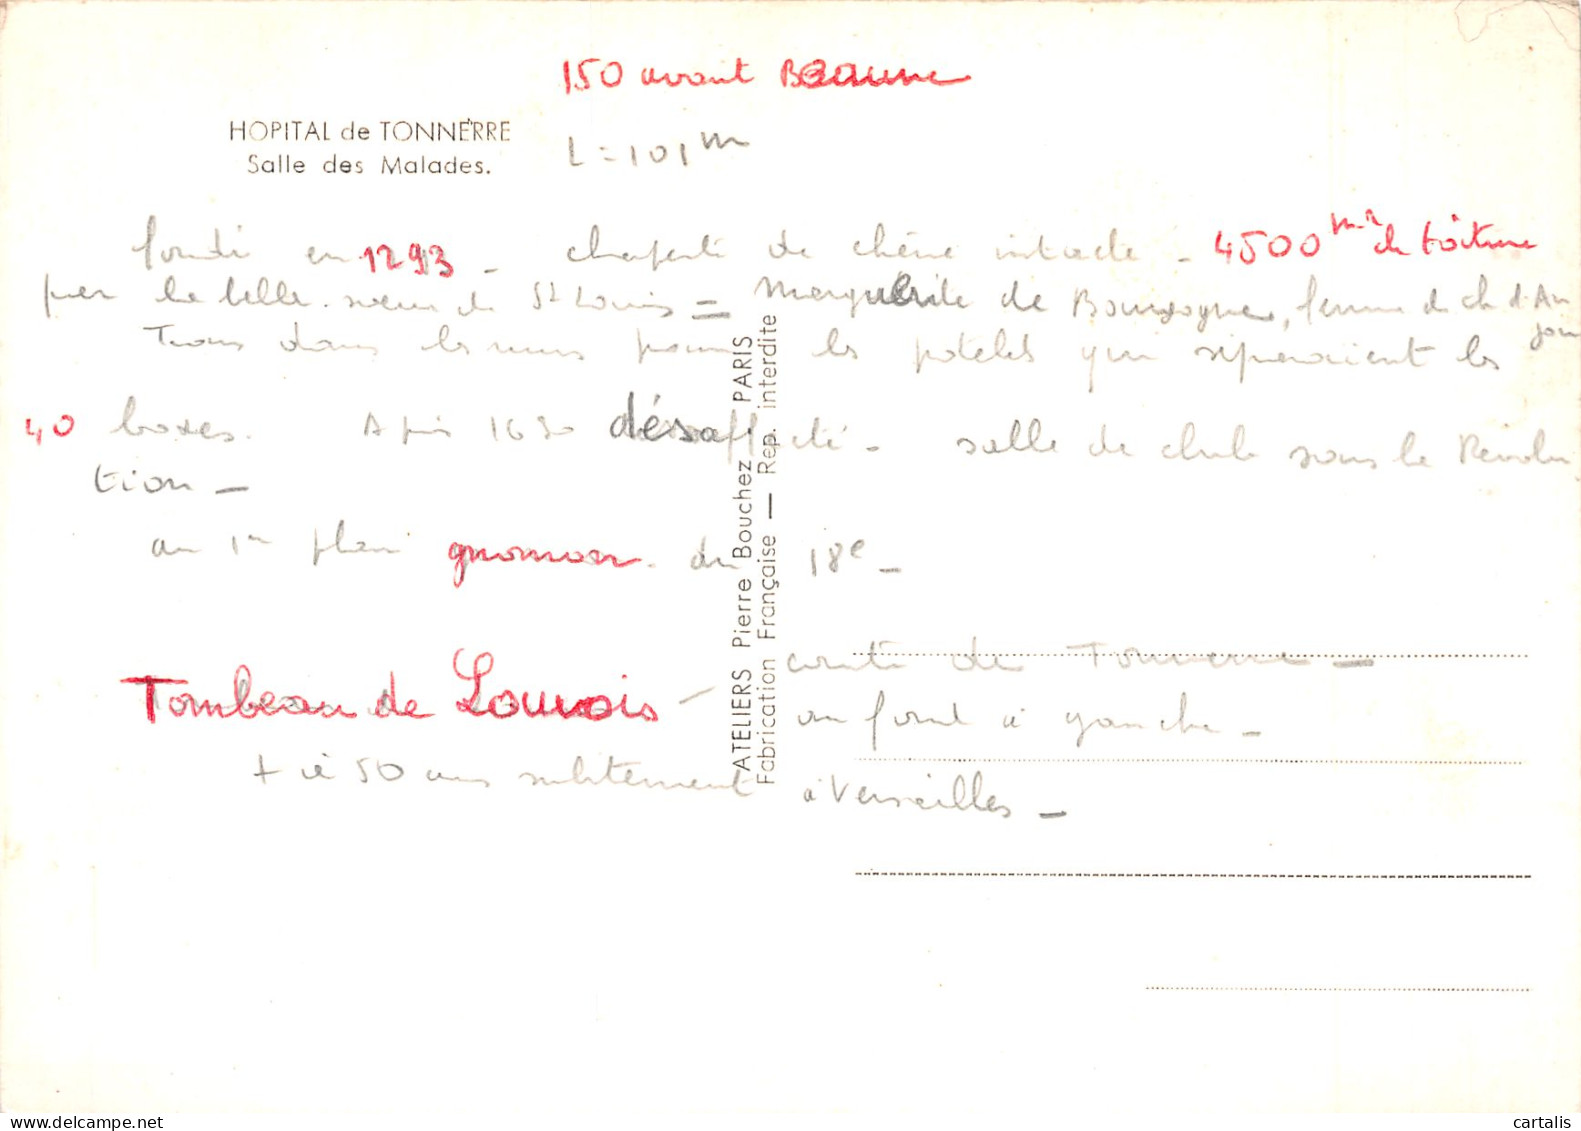 150 avant Beaune
HOPITAL de TONNERRE
Salle des Malades.
L = 101 m
fondé en 1293 - charpente de chêne intacte - 4500 m2 de toiture
par la belle-soeur de St Louis = Marguerite de Bourgogne, femme de ch d'Anjou
Trous dans les murs pour les poteaux qui séparaient les
40 boxes. Après 1650 désaffecté - salle de club sous la Révolu
tion -
au 1er plan gnomon du 18e -
Tombeau de Louvois - comte de Tonnerre -
au fond à gauche -
+ à 50 ans subitement à Versailles -
ATELIERS Pierre Bouchez PARIS
Fabrication Française — Rep. interdite
cartalis